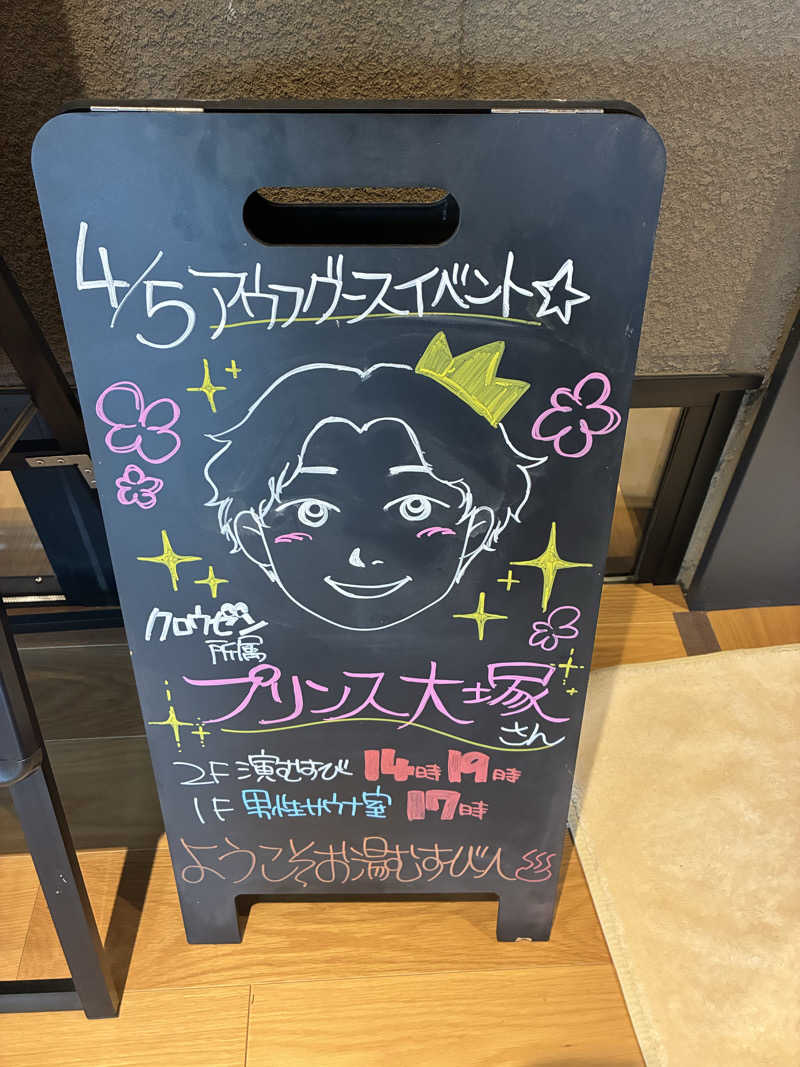 4/5 アウフグースイベント☆
クロウゼン
所属
プリンス大塚
さん
2F 演むすび 14時 19時
1F 男性サウナ室 17時
ようこそお湯むすびへ♨